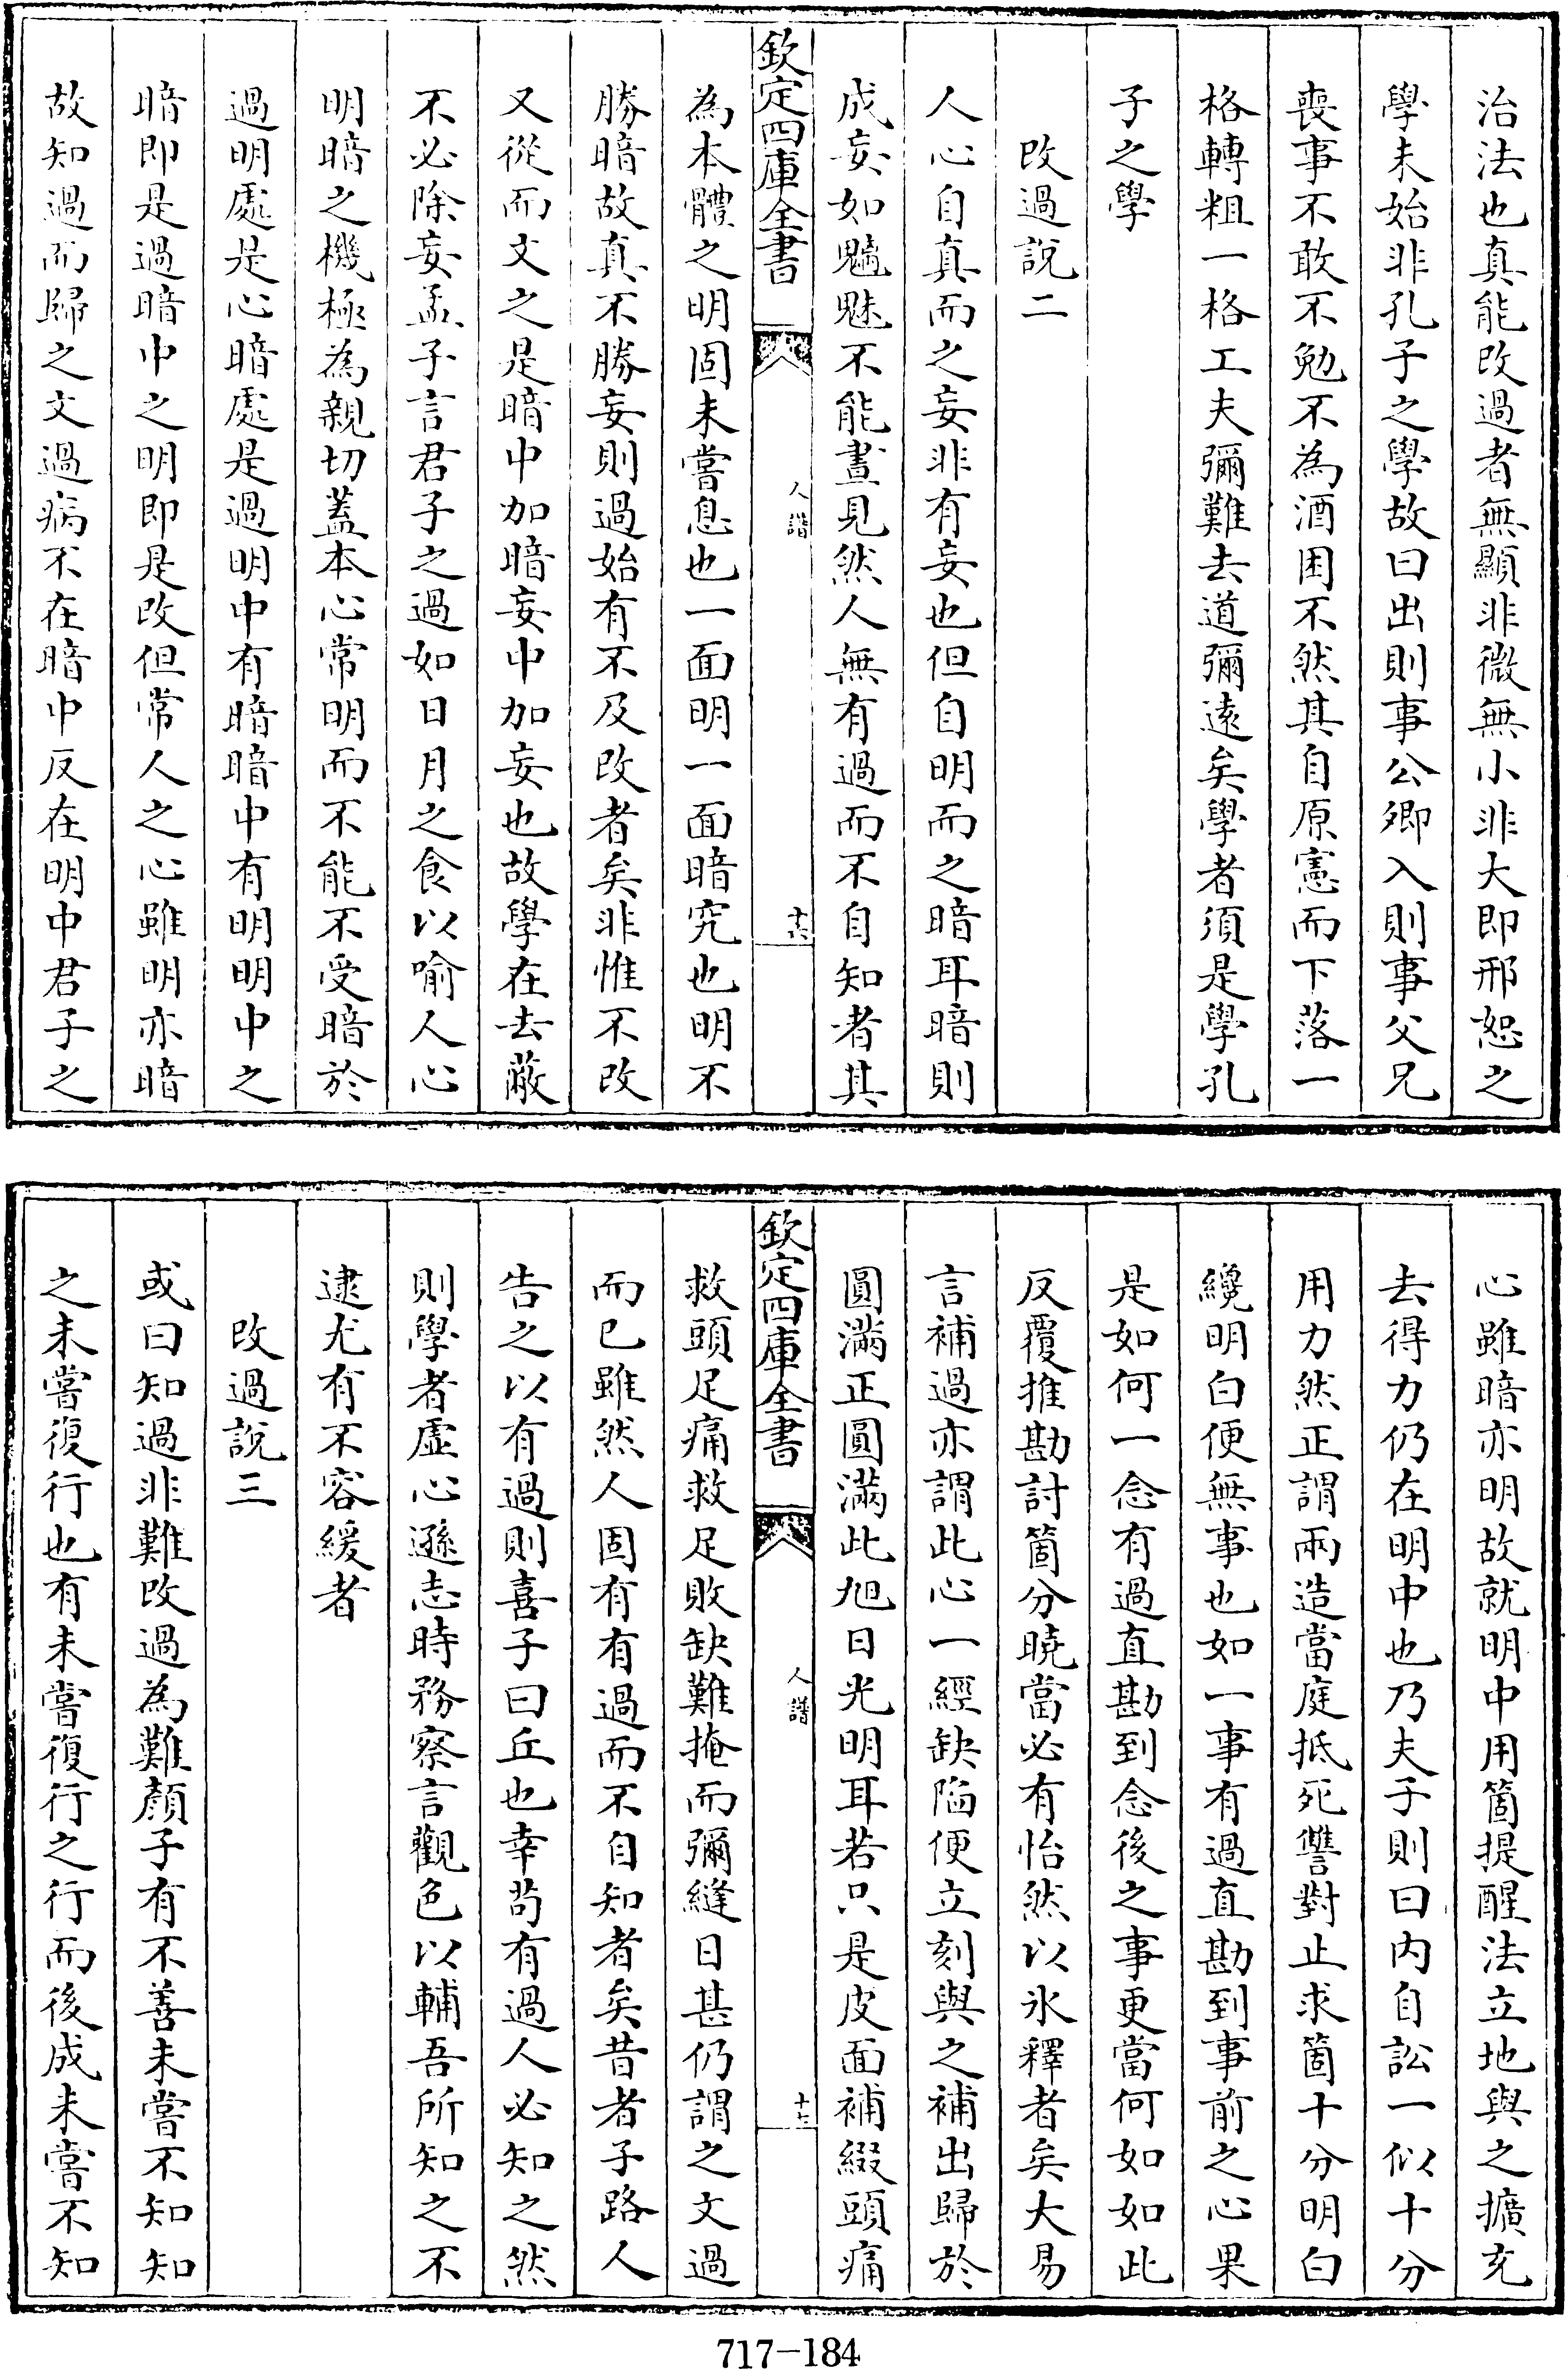 治法也真能改過者無顯非微無小非大即邢恕之
學未始非孔子之學故曰出則事公卿入則事父兄
喪事不敢不勉不為酒困不然其自原憲而下落一
格轉粗一格工夫彌難去道彌遠矣學者須是學孔
子之學
改過說二
人心自真而之妄非有妄也但自明而之暗耳暗則
成妄如魑魅不能晝見然人無有過而不自知者其
欽定四庫全書
人譜
十六
為本體之明固未嘗息也一面明一面暗究也明不
勝暗故真不勝妄則過始有不及改者矣非惟不改
又從而文之是暗中加暗妄中加妄也故學在去蔽
不必除妄孟子言君子之過如日月之食以喻人心
明暗之機極為親切蓋本心常明而不能不受暗於
過明處是心暗處是過明中有暗暗中有明明中之
暗即是過暗中之明即是改但常人之心雖明亦暗
故知過而歸之文過病不在暗中反在明中君子之
心雖暗亦明故就明中用箇提醒法立地與之擴充
去得力仍在明中也乃夫子則曰內自訟一似十分
用力然正謂兩造當庭抵死讐對止求箇十分明白
纔明白便無事也如一事有過直勘到事前之心果
是如何一念有過直勘到念後之事更當何如如此
反覆推勘討箇分曉當必有怡然以氷釋者矣大易
言補過亦謂此心一經缺陷便立刻與之補出歸於
圓滿正圓滿此旭日光明耳若只是皮面補綴頭痛
欽定四庫全書
人譜
十七
救頭足痛救足敗缺難掩而彌縫日甚仍謂之文過
而已雖然人固有有過而不自知者矣昔者子路人
告之以有過則喜子曰丘也幸苟有過人必知之然
則學者虛心遜志時務察言觀色以輔吾所知之不
逮尤有不容緩者
改過說三
或曰知過非難改過為難顏子有不善未嘗不知知
之未嘗復行也有未嘗復行之行而後成未嘗不知
717-184